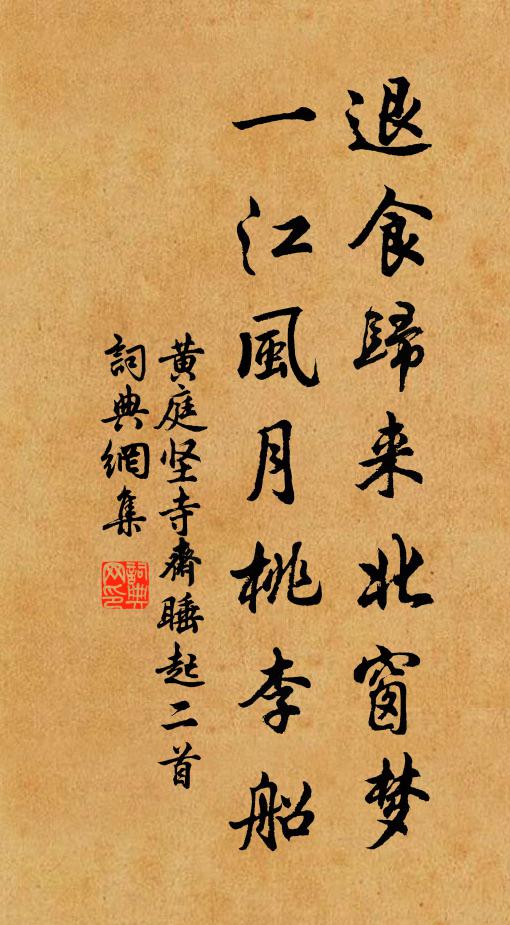 退食歸来北窗梦
一江風月桃李船
黄庭坚寺齋睡起二首
詞典網集
詞典网印